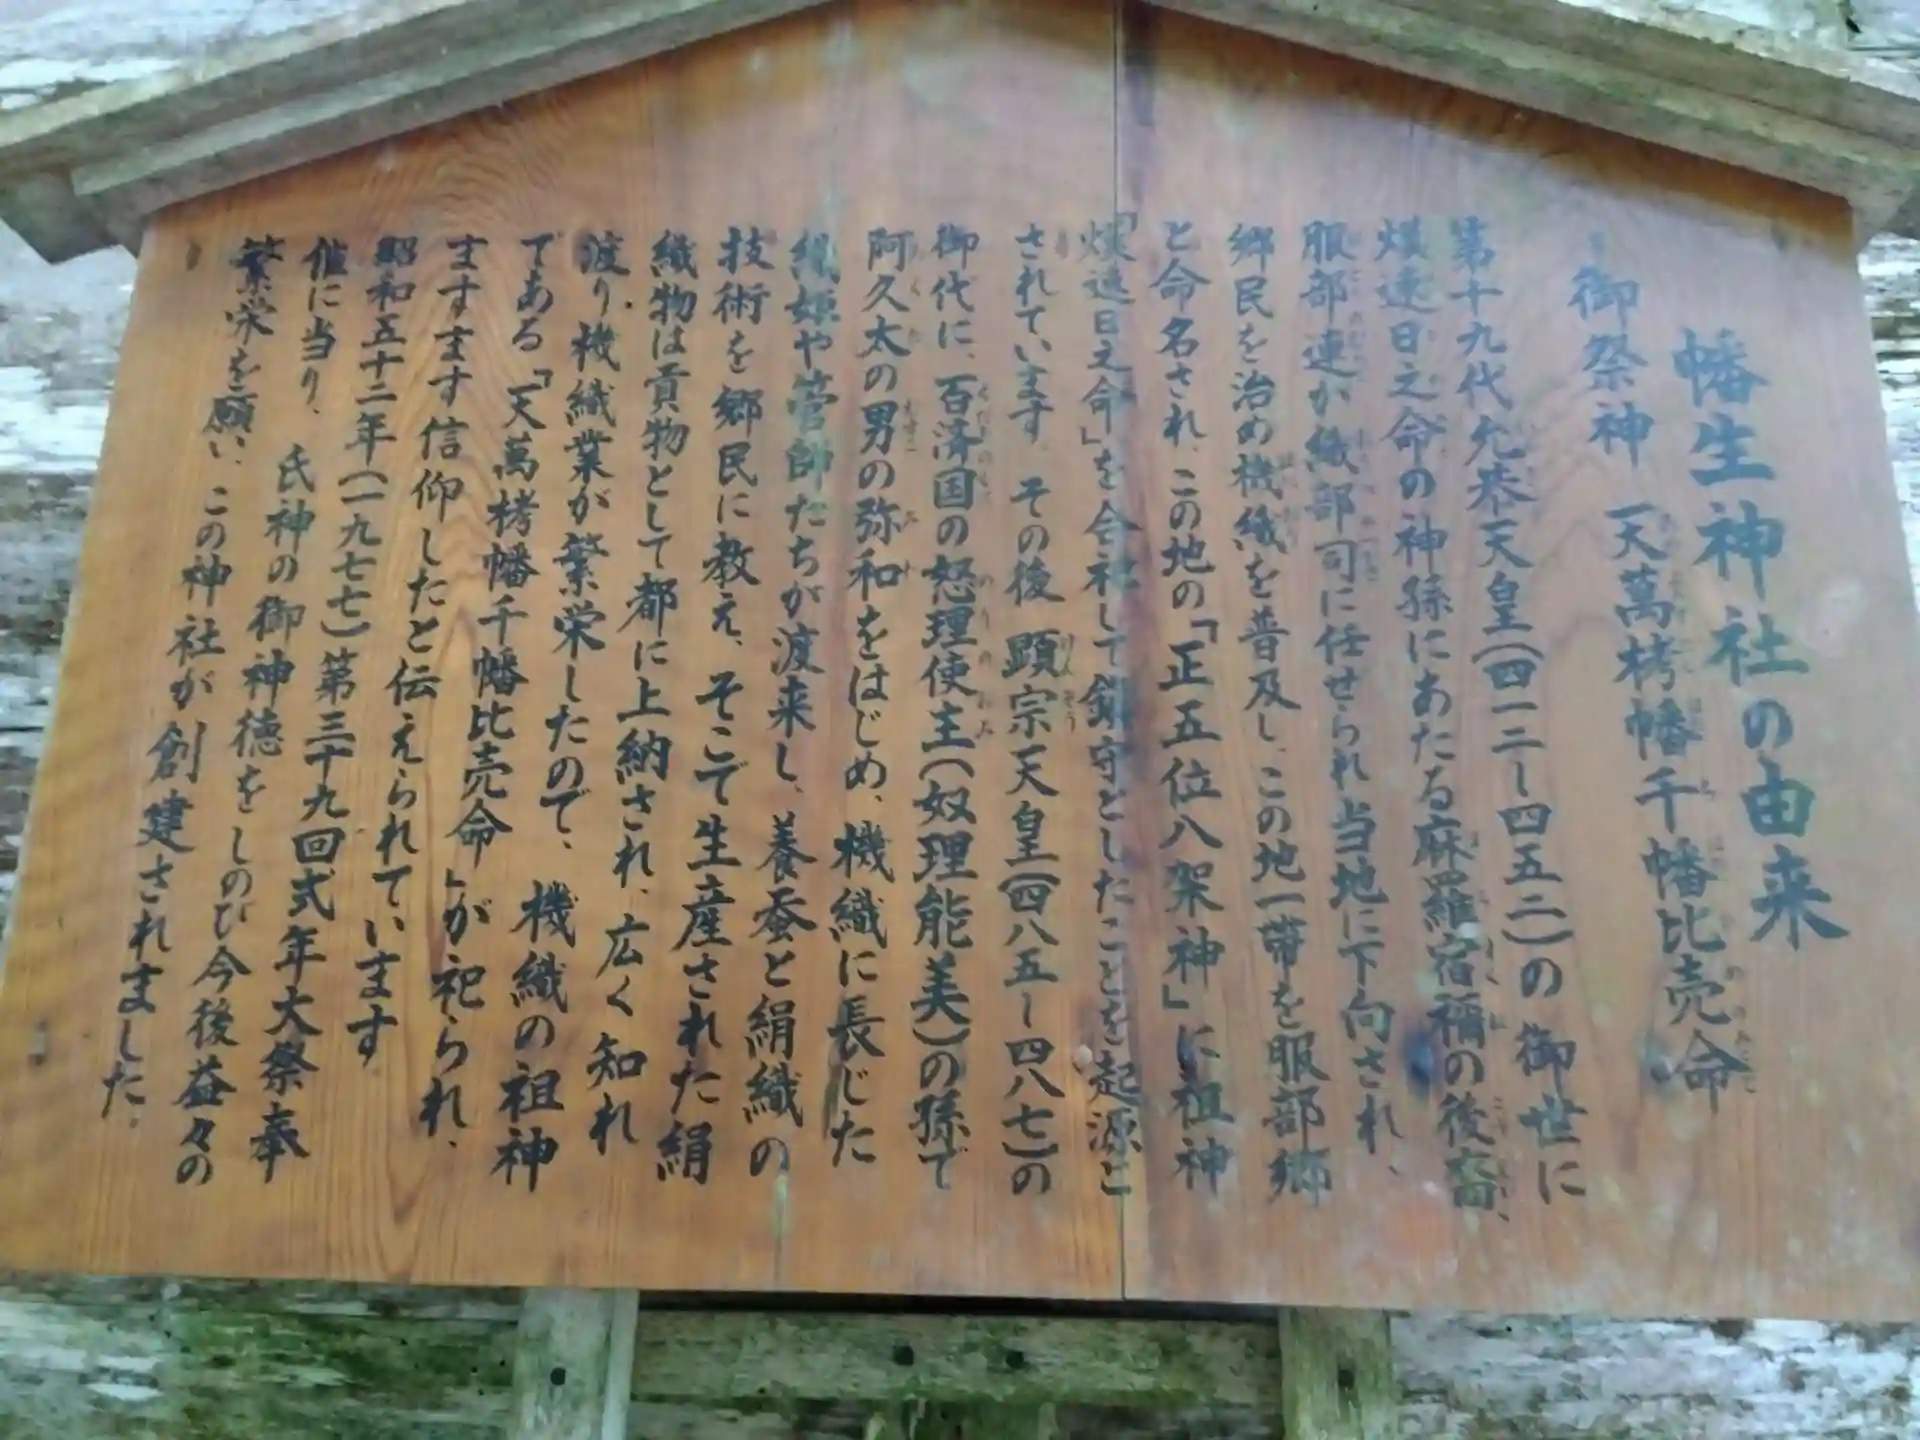 幡生神社の由来
御祭神 天萬栲幡千幡比売命
第十九代允恭天皇(四一二〜四五二)の御世に
熯速日之命の神孫にあたる麻羅宿禰の後裔、
服部連が織部司に任せられ当地に下向され、
郷民を治め機織を普及し、この地一帯を服部郷
と命名され、この地の「正五位八架神」に祖神
「熯速日之命」を合祀して鎮守としたことを起源と
されています。その後 顕宗天皇(四八五〜四八七)の
御代に、百済国の怒理使主(奴理能美)の孫で
阿久太の男の弥和をはじめ、機織に長じた
織姫や管師たちが渡来し、養蚕と絹織の
技術を郷民に教え、そこで生産された絹
織物は貢物として都に上納され、広く知れ
渡り、機織業が繁栄したので、機織の祖神
である「天萬栲幡千幡比売命」が祀られ、
ますます信仰したと伝えられています。
昭和五十二年(一九七七)第三十九回式年大祭奉
催に当り、氏神の御神徳をしのび今後益々の
繁栄を願い、この神社が創建されました。